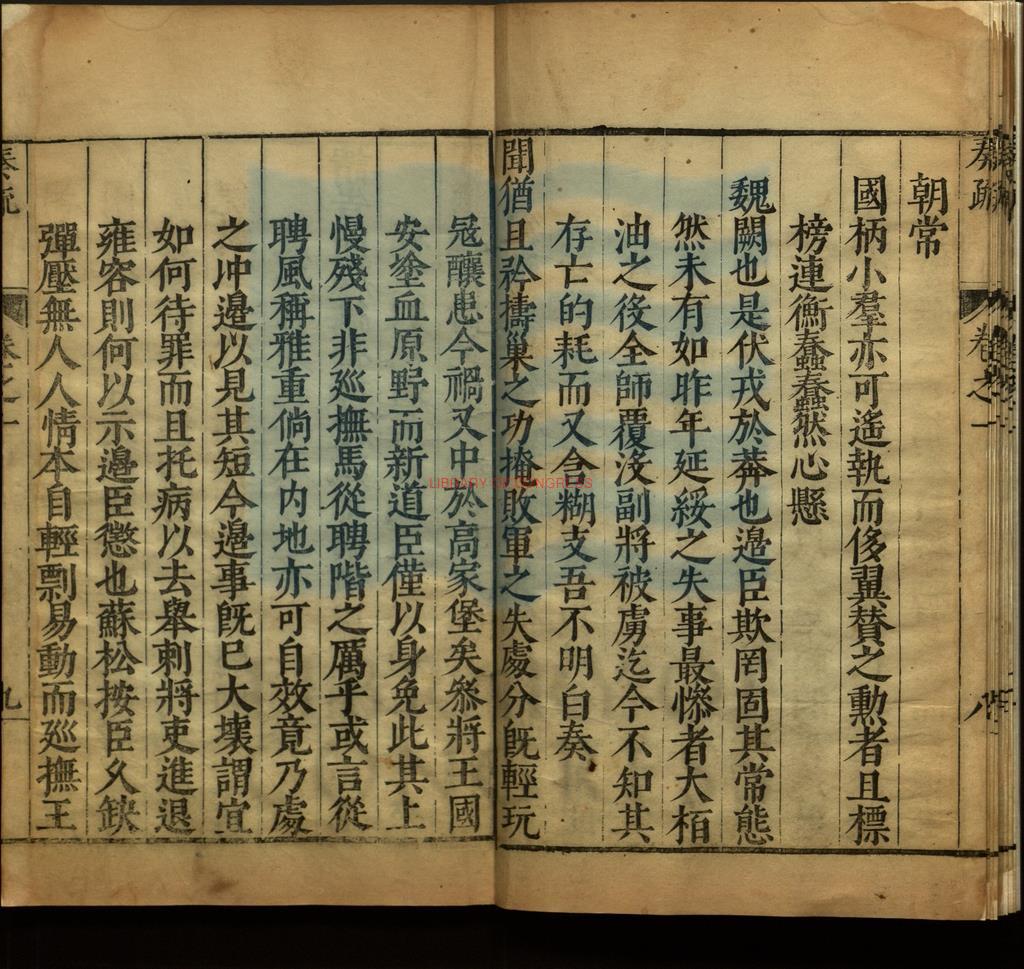 奏疏 卷之一 八
朝常
國柄小羣亦可遙執而侈翼贊之勲者且標
榜連衡蠢蠢然心懸
魏闕也是伏戎於莽也邉臣欺罔固其常態
然未有如昨年延綏之失事最慘者大栢
油之役全師覆没副將被虜迄今不知其
存亡的耗而又含糊支吾不明白奏
聞猶且矜擣巢之功掩敗軍之失處分旣輕玩
冦釀患今禍又中於高家堡矣叅將王國
安塗血原野而新道臣僅以身免此其上
慢殘下非廵撫馬從聘階之厲乎或言從
聘風稱雅重倘在内地亦可自效竟乃處
之冲邉以見其短今邉事旣巳大壊謂宜
如何待罪而且托病以去舉刺將吏進退
雍容則何以示邉臣懲也蘇松按臣久缺
彈壓無人人情本自輕剽易動而廵撫王
奏疏 卷之一 九
LIBRARY OF CONGRESS